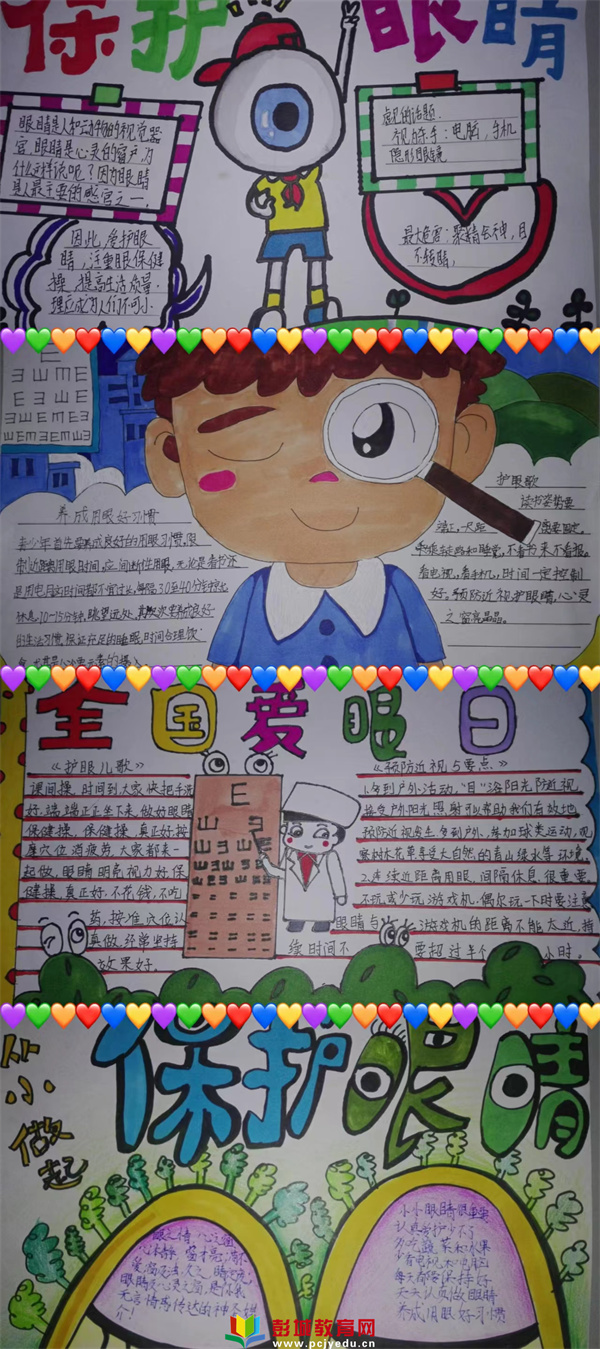 保护眼睛
眼睛是人和动物的视觉器
官,眼睛是心灵的窗户,为
什么这样说呢?因为眼睛
是人最主要的感官之一,
因此,爱护眼
睛,注重眼保健
操,提高生活质量.
理应成为人们不可小
常见的话题.
视力杀手:电脑,手机
隐形眼镜
最大危害:聚精会神,目
不转睛,
E
养成用眼好习惯
青少年首先要养成良好的用眼习惯,限
制近距离用眼时间,
无论是看书还
是用电脑时间都不宜过长,每隔30至40分钟应
休息10-15分钟,眺望远处,其次要养成良好
的生活习惯,保证充足的睡眠,时间合理饮
护眼歌
读书姿势要
端正,一尺距
离要固定。
乘坐车船和睡觉,不看书来不看报。
看电视,看手机,时间一定控制
好。预防近视护眼睛,心灵
之窗亮晶晶。
全国爱眼日
《护眼儿歌》
课间操,时间到大家快把手洗
好,端端正正坐下来,做好眼睛
保健操。保健操,真正好,按
摩穴位消疲劳,大家都来一
起做,眼睛明亮视力好保
健操,真正好,不花钱,不吃
药,按准穴位认
真做,经常坚持
效果好。
E
《预防近视5要点》
1.多到户外活动,"目"浴阳光防近视
接受户外阳光照射可帮助我们有效地
预防近视发生多到户外,参加球类运动,观
察树木花草享受大自然的青山绿水等环境。
2.连续近距离用眼,间隔休息很重要
不玩或少玩游戏机,偶尔玩一下时要注意
眼睛与游戏机的距离不能太近,持
续时间不要超过半个小时。
从小做起
保护眼睛
小小眼睛很重要
认真爱护少不了
多吃蔬菜和水果
少看电视和电脑
每天都要保持好
天天认真做眼操
养成用眼好习惯
彭城教育网
www.pcjyedu.cn